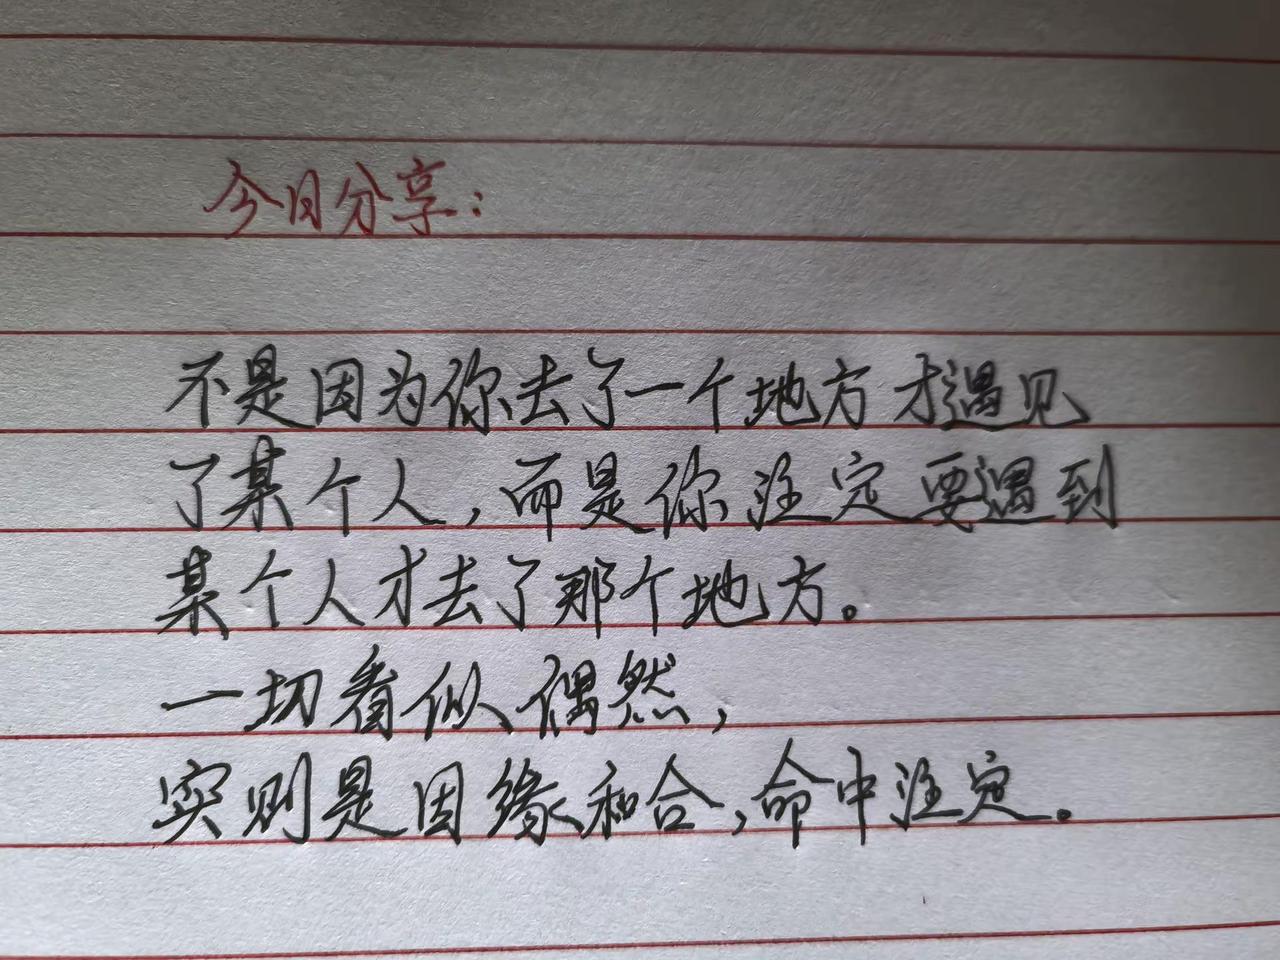 今日分享：
不是因为你去了一个地方才遇见
了某个人，而是你注定要遇到
某个人才去了那个地方。
一切看似偶然，
实则是因缘和合，命中注定。